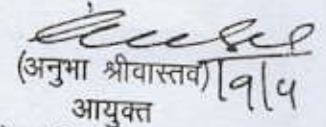 (अनुभा श्रीवास्तव) 19/4
आयुक्त